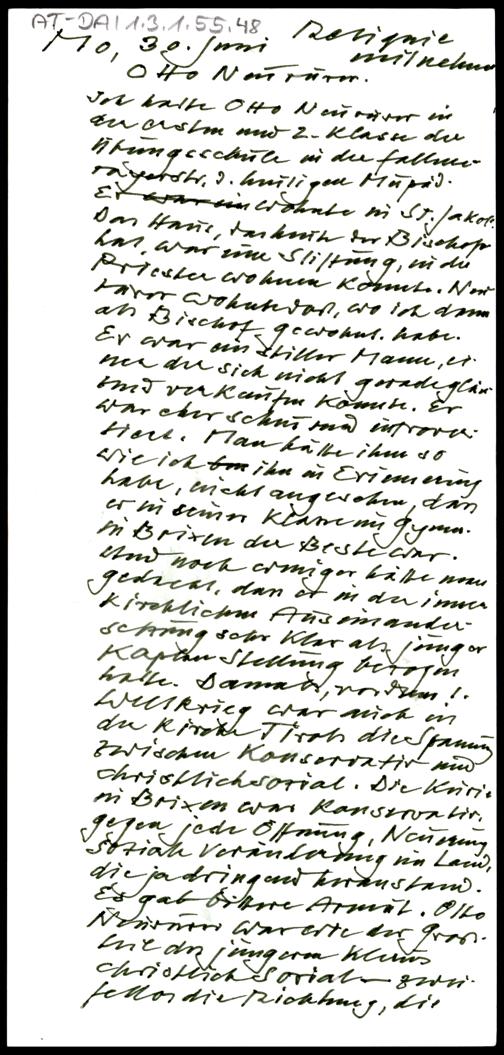 AT-DAI 1.3.1.55.48
Mo, 30. Juni Reliquie
mitnehmen
Otto Neururer.
Ich hatte Otto Neururer in
der ersten und 2. Klasse der
Übungsschule in der Fallme-
rayerstr. d. heutigen Mupäd.
Er war ein wohnte in St. Jakob.
Das Haus, das heute der Bischof
hat, war eine Stiftung, in der
Priester wohnen konnte. Neu-
rurer wohnte dort, wo ich dann
als Bischof gewohnt habe.
Er war ein stiller Mann, ei-
ner der sich nicht gerade glän-
zend verkaufen konnte. Er
war eher scheu und introver-
tiert. Man hätte ihm so
wie ich ihn in Erinnerung
habe, nicht angesehen, dass
er in seiner Klasse im Gymn.
in Brixen der Beste war.
Und noch weniger hätte man
gedacht, dass er in der inner
kirchlichen Auseinander-
setzung sehr klar als junger
Kaplan Stellung bezogen
hatte. Damals, vor dem 1.
Weltkrieg war auch in
der Kirche Tirols die Spannung
zwischen Konservativ und
christlichsozial. Die Kurie
in Brixen war konservativ,
gegen jede Öffnung, Neuerung
soziale Veränderung im Land,
die ja dringend heranstand.
Es gab bittere Armut. Otto
Neururer war wie der Gross-
teil des jüngeren Klerus
christlich sozial – zwei-
fellos die Richtung, die